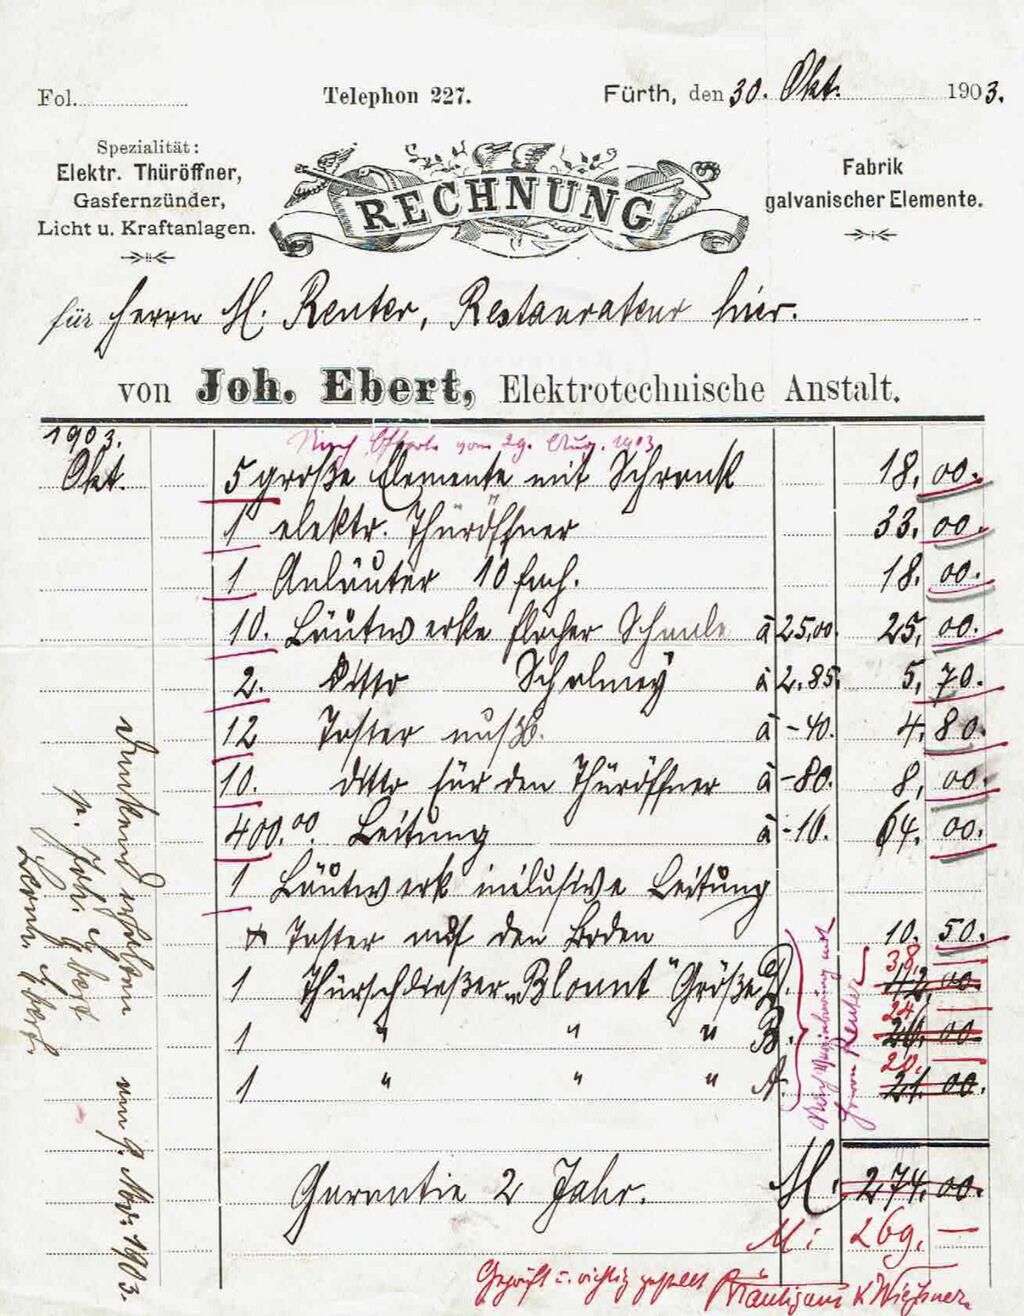 Fol.
Telephon 227.
Fürth, den 30. Okt. 1903.
Spezialität:
Elektr. Thüröffner,
Gasfernzünder,
Licht u. Kraftanlagen.
RECHNUNG
Fabrik
galvanischer Elemente.
für Herrn M. Reuter, Restaurateur hier.
von Joh. Ebert, Elektrotechnische Anstalt.
1903.
Nach Offerte vom 29. Aug. 1903
Okt. 5 große Elemente mit Schrank 18,00.
1 elektr. Thüröffner 33.00.
1 Anläuter 10 fach. 18.00.
10. Läutwerke flacher Schaale à 25,00 25,00.
2. ditto Schalmey à 2.85. 5,70.
12 Taster à -40. 4.80.
10. ditto für den Thüröffner à -80. 8,00.
400.00. Leitung à -16. 64.00.
1 Läutwerk inclusive Leitung
Taster auf den Boden 10.50.
1 Thürschließer "Blount" Größe D. 42,00 38.—
1 " " " B. 26.00 24.—
1 " " " A. 21.00. 20.—
Nach Vereinbarung mit
Herrn Reuter
Garantie 2 Jahr. M. 274.00.
M: 269.—
Geprüft u. richtig gestellt Bräutigam
Dankend erhalten am 9. Nov. 1903.
p. Joh. Ebert
Ebert.